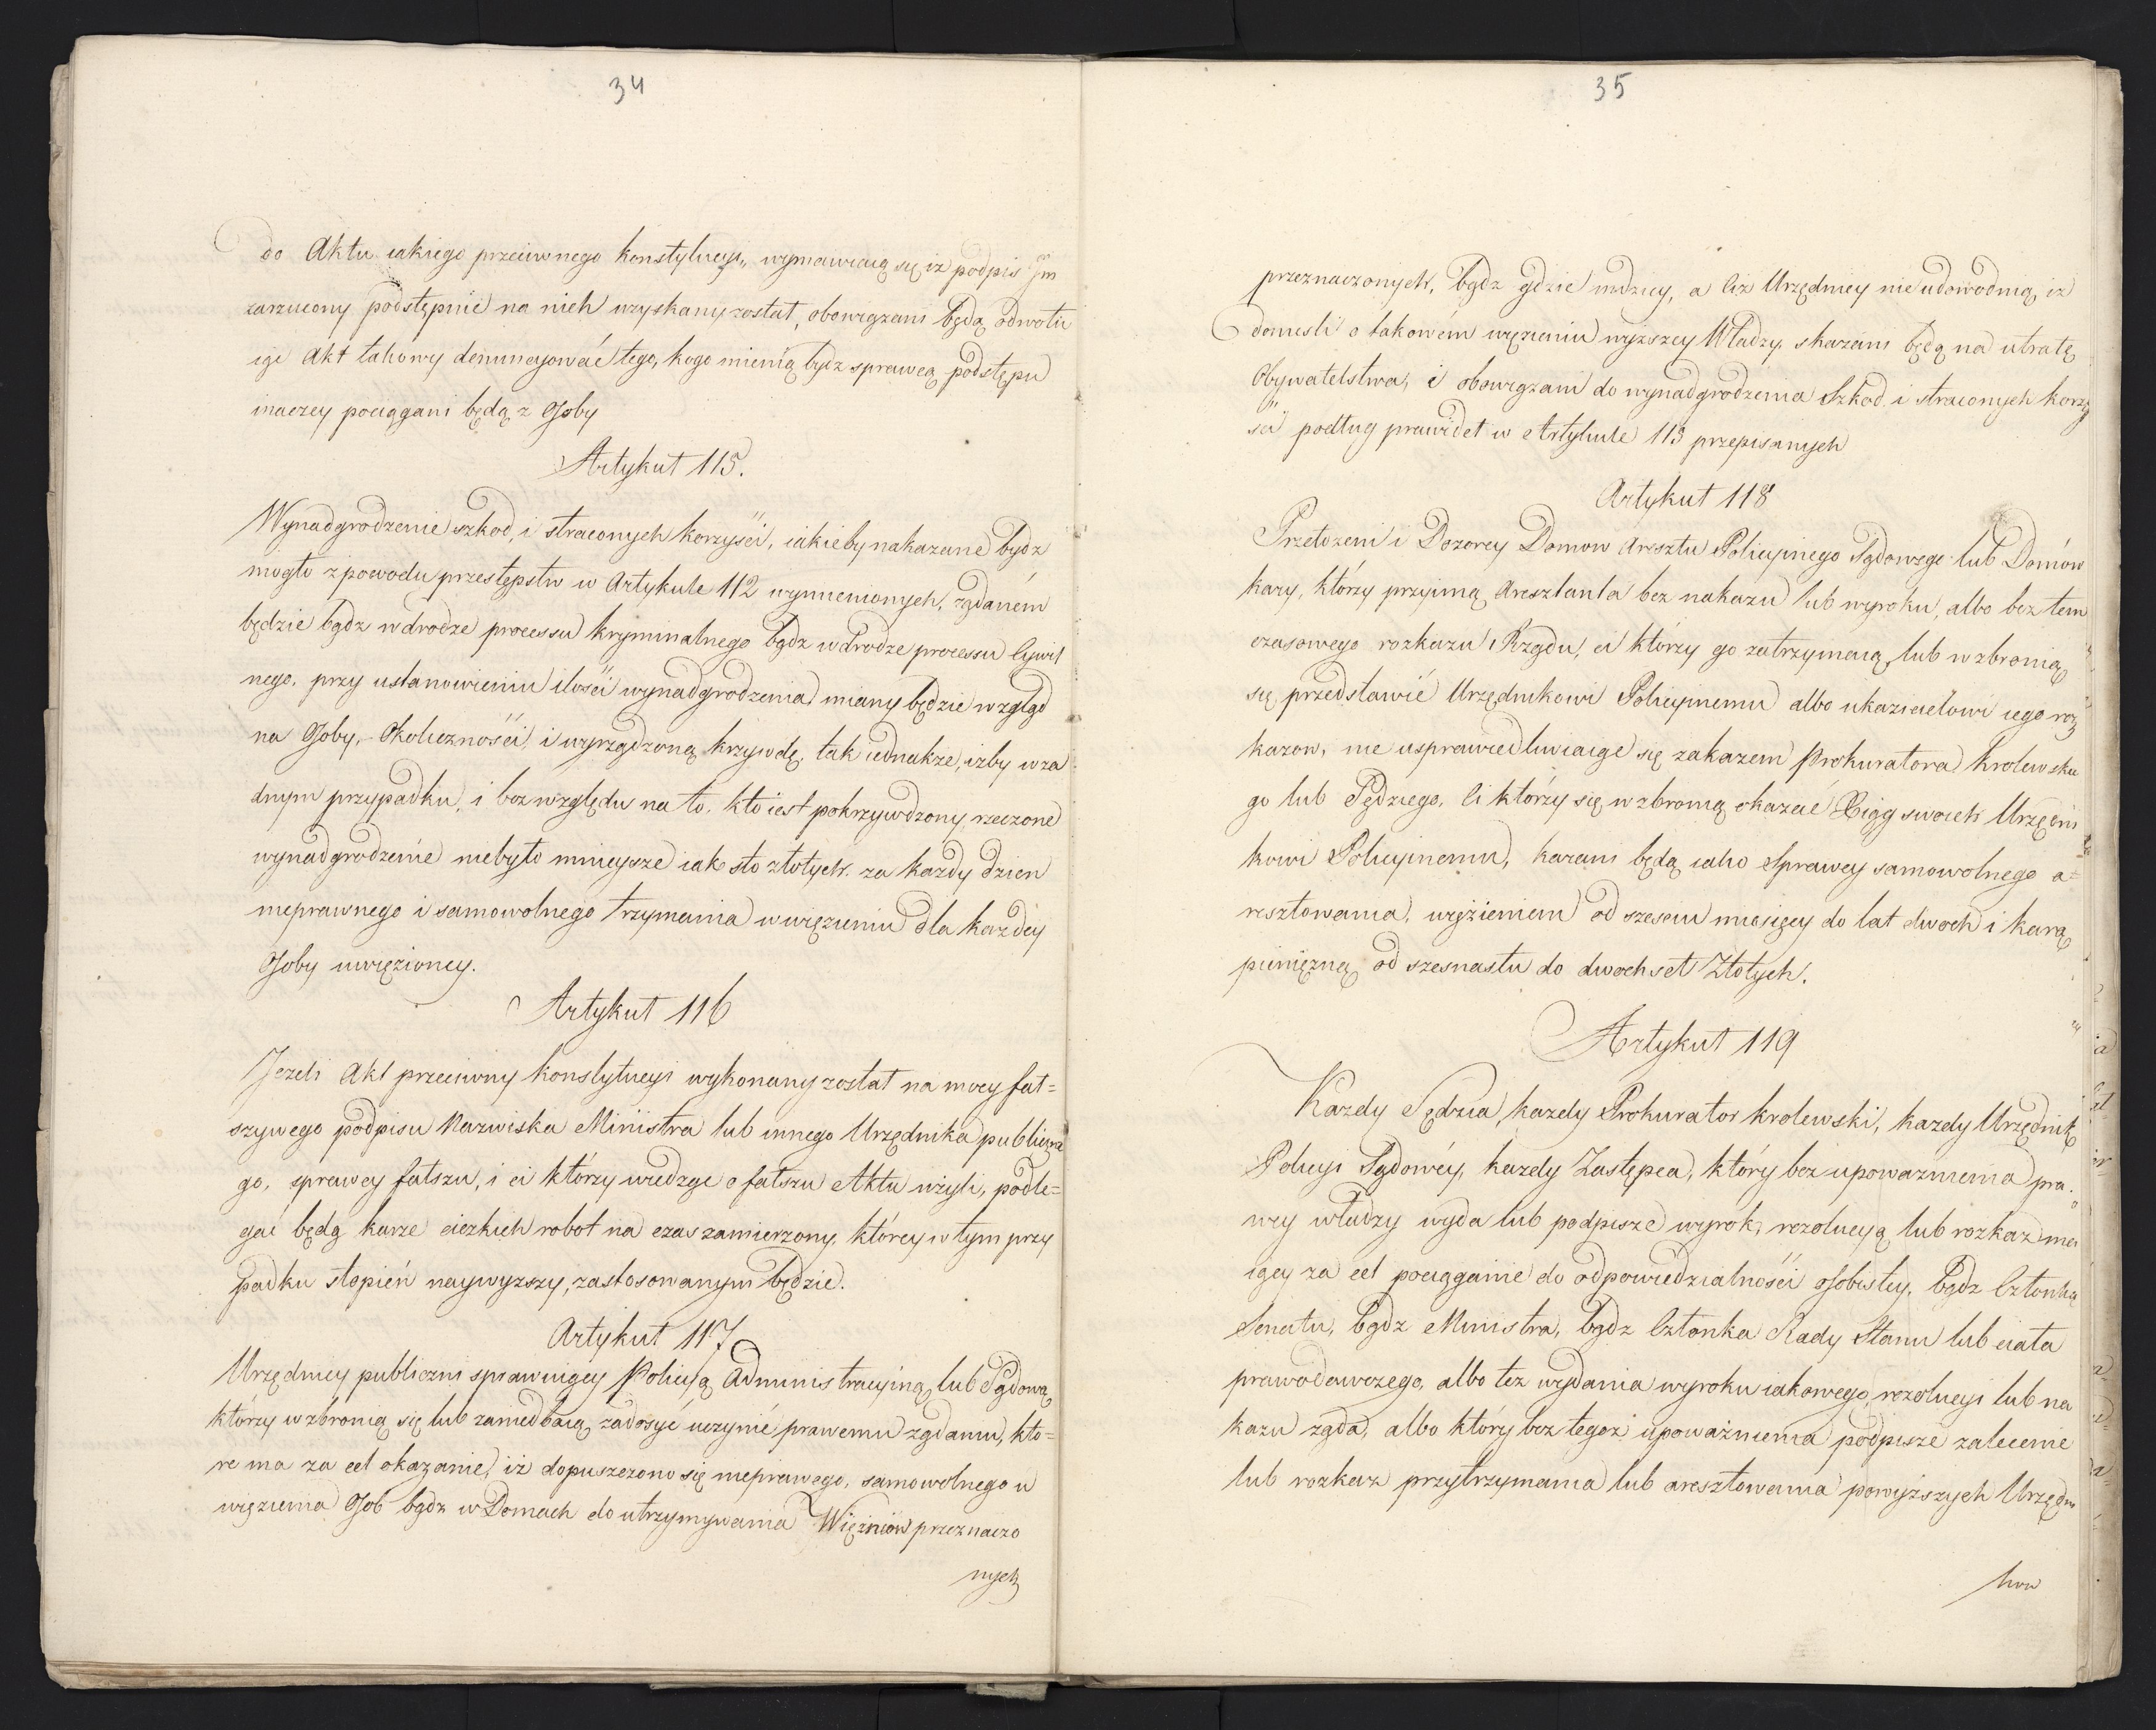 34
do Aktu iakiego przeciwnego konstytucyi, wymawiaią się iż podpis Jm
zarzucony podstępnie na nich uzyskany został, obowiązani będą odwołu
iąc Akt takowy denuncyować tego, kogo mienią bydź sprawcą podstępu
inaczey pociągani będą z Osoby
Artykuł 115.
Wynadgrodzenie szkod, i straconych korzyści, iakieby nakazane bydz
mogło z powodu przestępstw w Artykule 112 wymienionych, żądaném
będzie bądz w drodze processu kryminalnego bądz w drodze processu Cywil
nego, przy ustanowieniu ilości wynadgrodzenia miany będzie wzgląd
na Osoby, Okoliczności, i wyrządzoną krzywdę, tak iednakze, iżby w ża
dnym przypadku, i bez względu na to, kto iest pokrzywdzony, rzeczone
wynadgrodzenie niebyło mnieysze iak sto złotych za każdy dzien
nieprawnego i samowolnego trzymania w więzieniu dla każdey
Osoby uwięzioney.
Artykuł 116
Jeżeli Akt przeciwny konstytucyi wykonany został na mocy fał=
szywego podpisu Nazwiska Ministra lub innego Urzędnika publiczne
go, sprawcy fałszu, i ci którzy wiedząc o fałszu Aktu użyli, podle=
gać będą karze ciężkich robot na czas zamierzony, którey w tym przy
padku stopień naywyższy, zastosowanym będzie.
Artykuł 117
Urzędnicy publiczni sprawuiący Policyą Administracyiną lub Sądową
którzy wzbronią się lub zaniedbaią zadosyć uczynić prawemu żądaniu, któ=
re ma za cel okazanie, iż dopuszczono się nieprawego, samowolnego u
więzienia Osob bądz w Domach do utrzymywania Więźniów przeznaczo
nych
35
przeznaczonych, bądz gdzie indziey, a ciż Urzędnicy nie udowodnią, iż
donieśli o takowém więzieniu wyższey Władzy, skazani będą na utratę
Obywatelstwa, i obowiązani do wynadgrodzenia Szkod i straconych korzy
ści podług prawideł w Artykule 115 przepisanych
Artykuł 118
Przełożeni i Dozorcy Domow Aresztu Policyinego Sądowego lub Domów
kary, którzy przyimą Aresztanta bez nakazu lub wyroku, albo bez tem
czasowego rozkazu Rządu, ci którzy go zatrzymaią, lub wzbronią
się przedstawić Urzędnikowi Policyinemu albo ukazicielowi iego roz
kazow, nie usprawiedliwiaiąc się zakazem Prokuratora krolewskie
go lub Sędziego, Ci którzy się wzbronią okazać Xiąg swoich Urzędni
kowi Policyinemu, karani będą iako Sprawcy samowolnego a=
resztowania, więzieniem od sześciu miesięcy do lat dwoch i karą
pieniężną od szesnastu do dwochset Złotych.
Artykuł 119
Każdy Sędzia, każdy Prokurator krolewski, każdy Urzędnik
Policyi Sądowéy, każdy Zastępca, który bez upoważnienia pra
wey władzy wyda lub podpisze wyrok, rezolucyą lub rozkaz ma
iący za cel pociąganie do odpowiedzialności osobistey, bądz Członka
Senatu, bądz Ministra, bądz Członka Rady Stanu lub ciała
prawodawczego, albo też wydania wyroku iakowego, rezolucyi lub na
kazu żąda, albo który bez tegoż upoważnienia podpisze zalecenie
lub rozkaz przytrzymania lub aresztowania powyższych Urzędni
kow